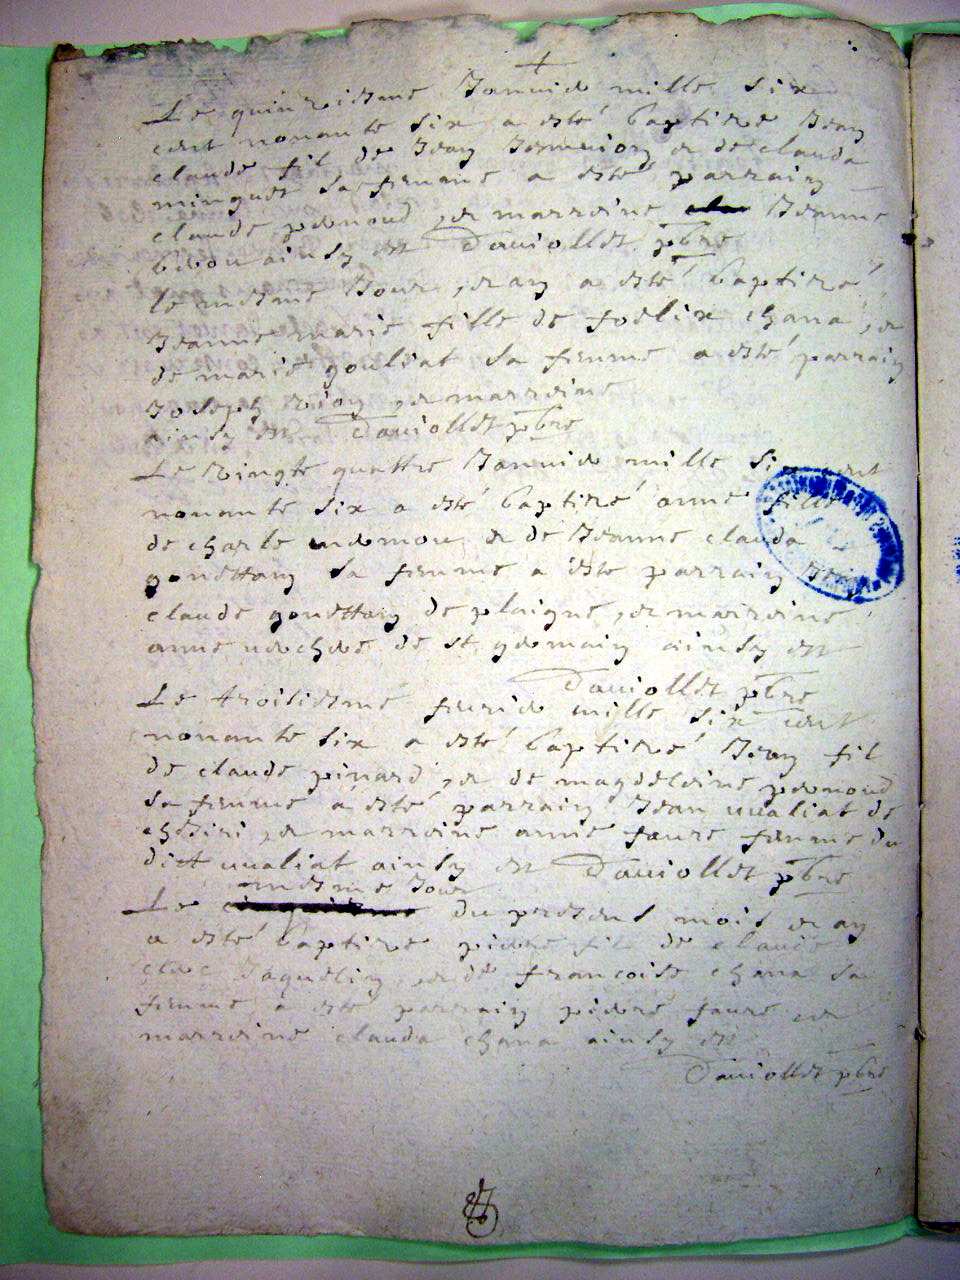 Le quinziesme Januier mille six
cent nonante six a esté baptize Jean
claude fil de Jean et de clauda
minguet sa femme a esté parrain
claude pernoud et marreine Jeanne
ainsy est Dauiollet pbre
le mesme Jour et an a esté baptizé
Jeanne marie fille de foelix chana et
de marie gouliat sa femme a esté parrain
Joseph et marreine
ainsy est Dauiollet pbre
Le vingte quattre Januier mille six cent
nonante six a esté baptizé anne fille
de charle et de Jeanne clauda
gonettaz sa femme a este parrain
claude de plaigne et marreine
anne de st germain ainsy est
Dauiollet pbre
Le troisiesme feurier mille six cent
nonante six a esté baptizé Jean fil
de claude pinard et de magdeleine pernoud
sa femme a esté parrain Jean uualiat de
et marreine anne faure femme du
dict uualiat ainsy est Dauiollet pbre
mesme Jour
Le du present mois et an
a esté baptize pierre fil de claude
Jaquelin et de francoise chana sa
femme a este parrain pierre faure et
marreine clauda chana ainsy est
Dauiollet pbre